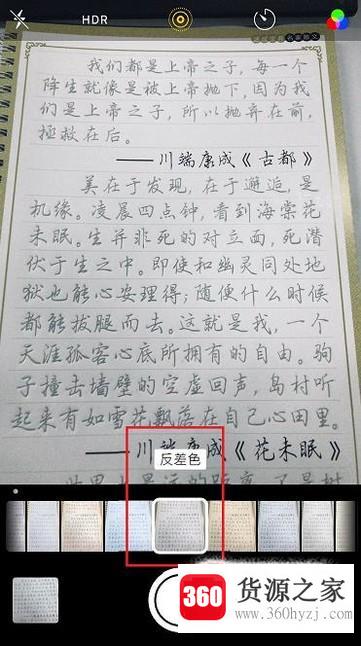 HDR
我们都是上帝之子，每一个
降生就像是被上帝抛下，因为我
们是上帝之子，所以抛弃在前，
拯救在后。
——川端康成《古都》
美在于发现，在于邂逅，是
机缘。凌晨四点钟，看到海棠花
未眠。生并非死的对立面，死潜
伏于生之中。即使和幽灵同处地
狱也能心安理得；随便什么时候
都能拔腿而去。这就是我，一个
天涯孤客心底所拥有的自由。驹
子撞击墙壁的空虚回声，岛村听
起来有如雪花飘落在自己心田里。
——川端康成《花未眠》
反差色
360 货源之家
www.360hyzj.com